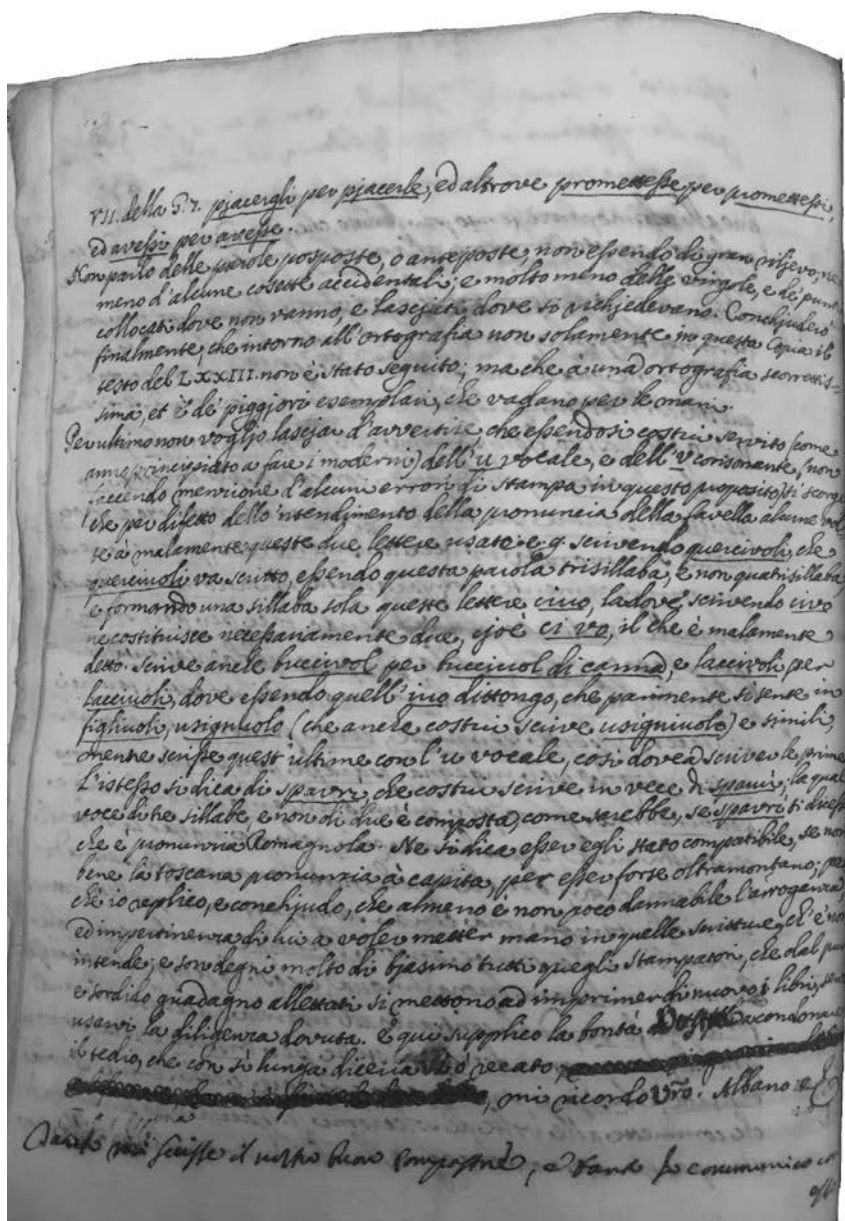 VII. della G. 7. pjacergli per pjacerle, ed altrove promettesse per promettessi,
ed avessi per avesse.
Non parlo delle parole posposte, ò anteposte, non essendo di gran riljevo, ne
meno d'alcune cosette accidentali; e molto meno delle virgole, e de' punti
collocati dove non vanno, e lascjati, dove si richjedevano. Conchjuderò
finalmente, che intorno all'ortografia non solamente in questa Copia il
testo del LXXIII. non è stato seguito; ma che à una ortografia scorrettis-
sima, et è de' piggjori esemplari, che vadano per le mani.
Per ultimo non voglio lascjar d'avvertire, che essendosi costui servito (come
anno principiato a fare i moderni) dell'u vocale, e dell'v consonante, (non
faccendo menzione d'alcuni errori di stampa in questo proposito) si scorge
che per difetto dello 'ntendimento della pronuncia della favella alcune vol-
te à malamente queste due lettere usato e.g. scrivendo quercivoli, che
querciuoli va scritto, essendo questa parola trisillaba, e non quatrisillaba,
e formando una sillaba sola queste lettere ciuo, la dove scrivendo civo
ne costituisce necessariamente due, cjoè ci vo, il che è malamente
detto. Scrive anche buccivol per bucciuol di canna, e laccivoli per
lacciuoli, dove essendo quell'iuo dittongo, che parimente si sente in
figliuoli, usignuolo (che anche costui scrive usigniuolo) e simili,
mente scrisse quest'ultime con l'u vocale, così dovea scriver le prime
L'istesso si dica di spavrì, che costui scrive in vece di spaurì, la qual
voce di tre sillabe, e non di due è composta, come sarebbe, se spavrì si dicesse
che è pronunzia Romagnola. Ne si dica esser egli stato compatibile, se non
bene la toscana pronunzia à capita, per esser forse oltramontano; per
chè io replico, e conchjudo, che almeno è non poco dannabile l'arroganza,
ed impertinenza di lui a voler metter mano in quelle scritture, ch'e' non
intende; e son degni molto di bjasimo tutti quegli Stampatori, che dal puro
e sordido guadagno allettati si mettono ad imprimer di nuovo i libri, senza
usarvi la diligenza dovuta. E qui supplico la bontà a condonar
il tedio, che con sì lunga diceria ò recato,
, mi ricordo Vro. Albano
mi scrisse il nostro buon e communico